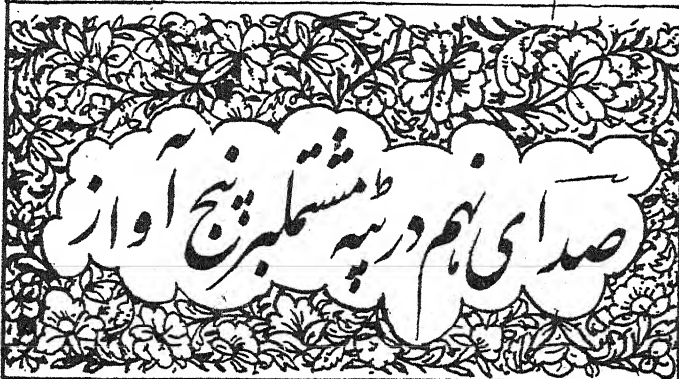 صدای نہم در ٹپہ مشتملبر پنج آواز